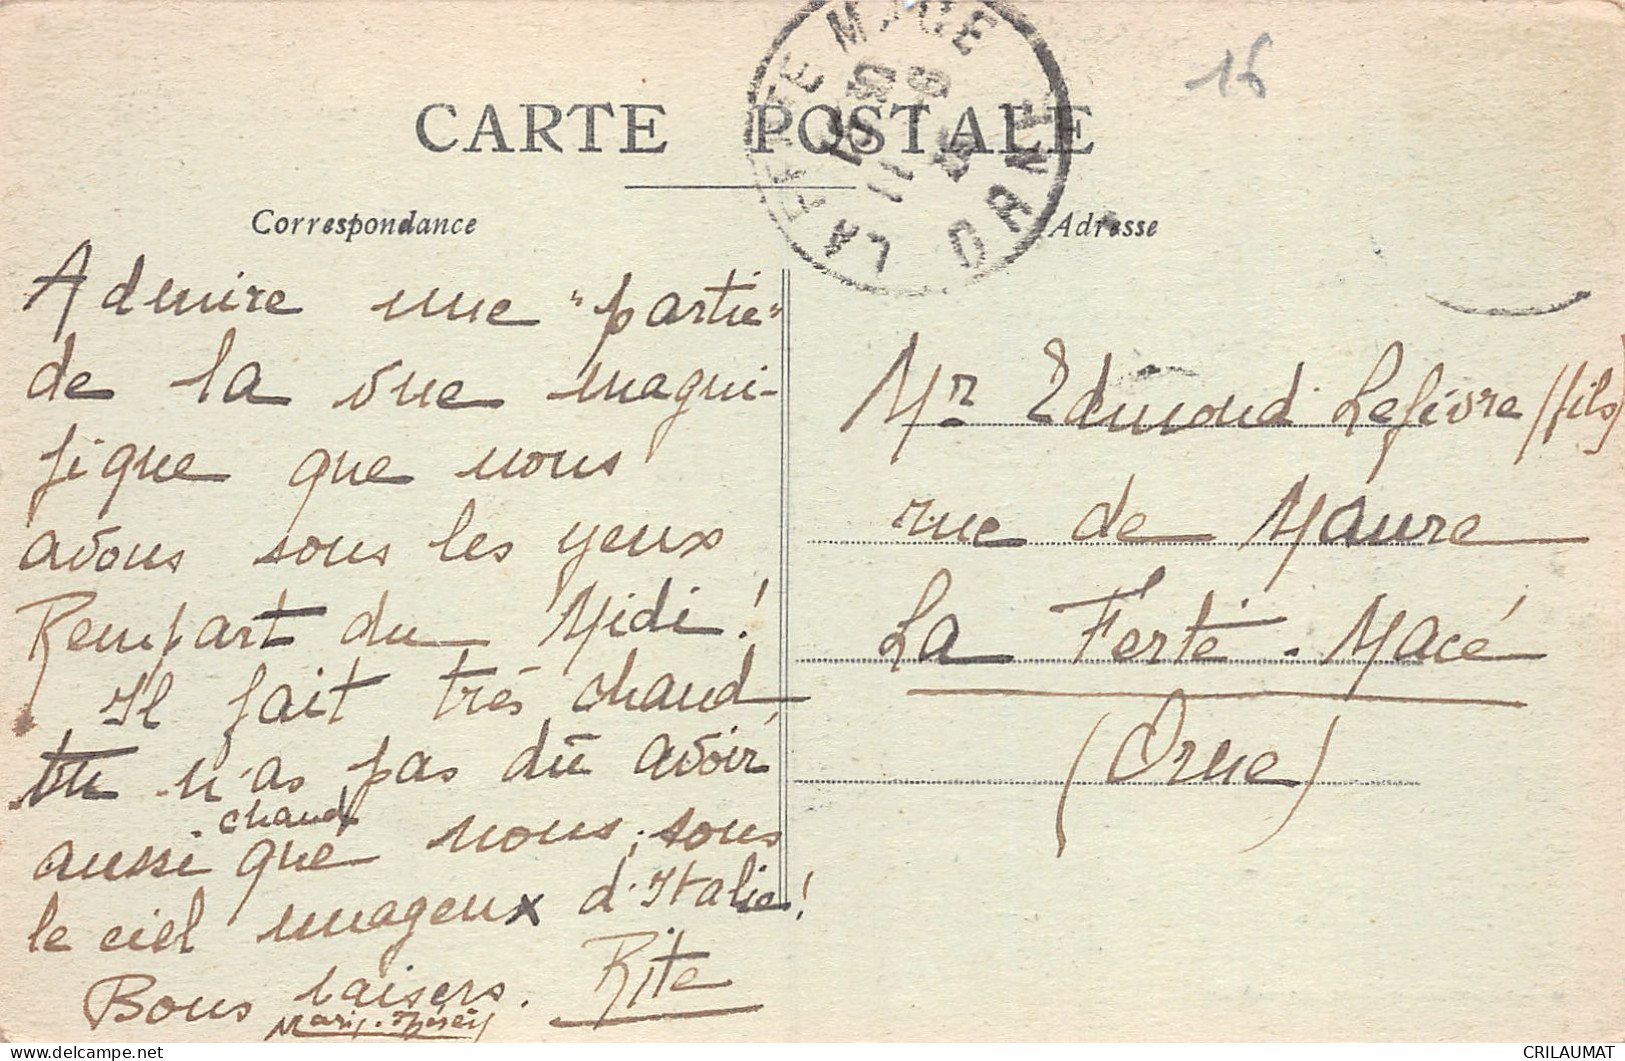 CARTE POSTALE
Correspondance
Adresse
LA FERTE MACE
ORNE
16
Admire une "partie"
de la vue magni-
fique que nous
avons sous les yeux
Rempart du Midi !
Il fait très chaud,
tu n'as pas dû avoir
chaud
aussi que nous, sous
le ciel nuageux d'Italie !
Bons baisers. Rite
Mr Edmond Lefèvre (fils)
rue de Maure
La Ferté-Macé
(Orne)
CRILAUMAT